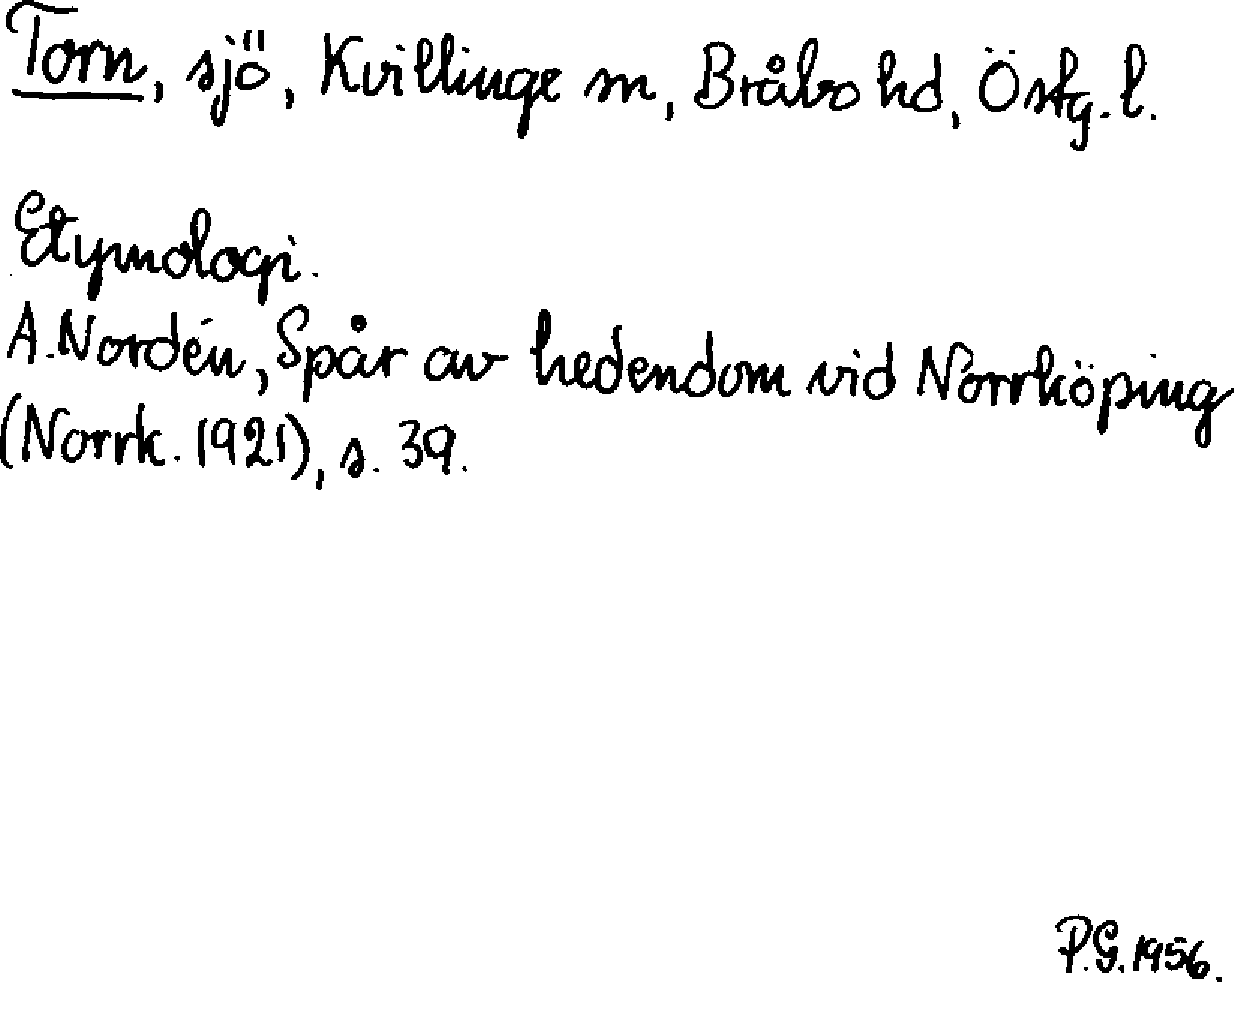 Torn, sjö, Kvillinge sn, Bråbo hd, Östg. l.
Etymologi.
A. Nordén, Spår av hedendom vid Norrköping
(Norrk. 1921), s. 39.
P.G. 1956.